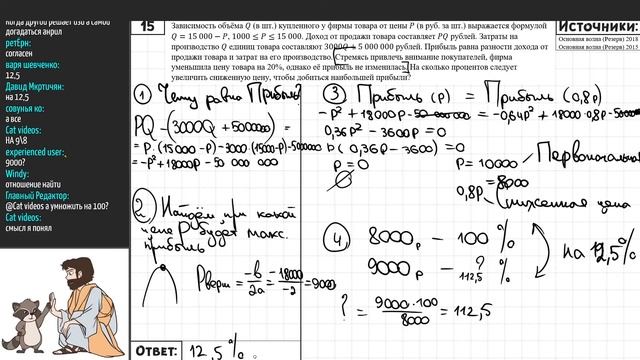 когда другой решает изо а самому
догадаться анрил
ретЁрн:
согласен
варя шевченко:
12,5
Давид Мкртичян:
на 12,5
совунья ко:
а все
Cat videos:
НА 9\8
experienced user:
9000?
Windy:
отношение найти
Главный Редактор:
@Cat videos а умножить на 100?
Cat videos:
смысл я понял
15
Зависимость объёма Q (в шт.) купленного у фирмы товара от цены P (в руб. за шт.) выражается формулой
Q = 15 000 − P, 1000 ≤ P ≤ 15 000. Доход от продажи товара составляет PQ рублей. Затраты на
производство Q единиц товара составляют 3000Q + 5 000 000 рублей. Прибыль равна разности дохода от
продажи товара и затрат на его производство. Стремясь привлечь внимание покупателей, фирма
уменьшила цену товара на 20%, однако её прибыль не изменилась. На сколько процентов следует
увеличить сниженную цену, чтобы добиться наибольшей прибыли?
Источники:
Основная волна (Резерв) 2018
Основная волна (Резерв) 2015
1 Чему равна Прибыль?
PQ − (3000Q + 5000000)
= P·(15000−P) − 3000·(15000−P) − 5000000
= −P² + 18000P − 50 000 000
2 Найдём, при какой
цене P будет макс.
прибыль
Pверш = −b/2a = −18000/−2 = 9000
3 Прибыль (P) = Прибыль (0,8P)
−P² + 18000P − 50 000 000 = −0,64P² + 18000·0,8P − 5000000
0,36P² − 3600P = 0
P(0,36P − 3600) = 0
P = 0
P = 10000 Первоначальн
0,8P = 8000
Сниженная цена
4 8000р − 100%
9000р − ?%
112,5
на 12,5%
? = 9000·100/8000 = 112,5
ОТВЕТ: 12,5%